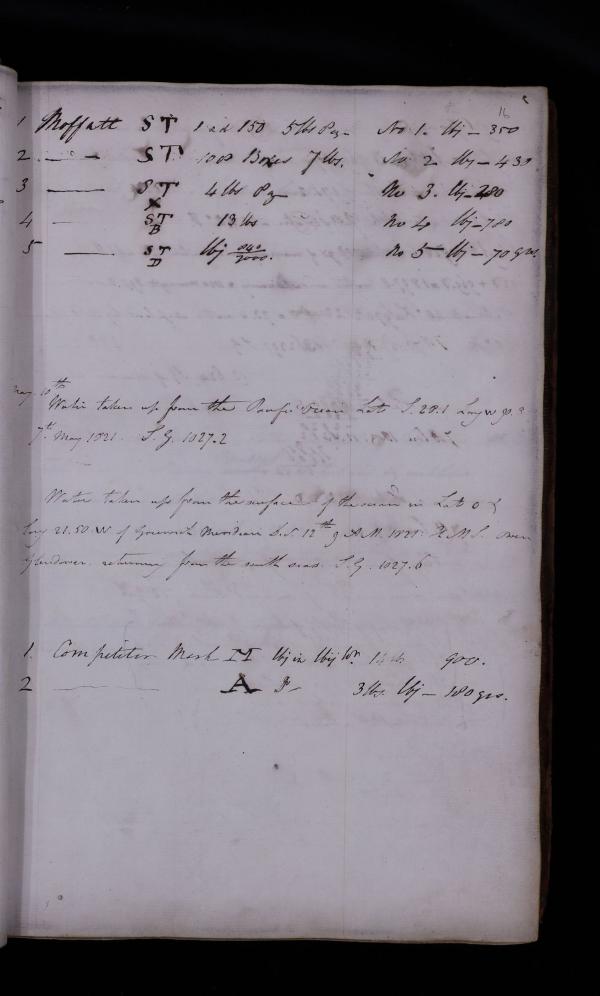 16
1 Moffatt ST 1 ad 150 5lbs Pg - No 1. lbj - 350
2 — ST 1008 Boxes 7 lbs. No. 2 lbj - 430
3 — ST 4 lbs Pg - No 3. lbj - 280
X
4 — ST 13 lbs No 4 lbj - 780
B
5 — ST lbj No 5 lbj - 70 grs.
D
May 10th
Water taken up from the Pacific Ocean Lat S. 28.1 Long W 90.
7th May 1821. S.G. 1027.2
Water taken up from the surface of the ocean in Lat 0 &
Long 21.50 W of Greenwich Meridian 12th A.M. 1821. H.M.S. Owen
Glendower. returning from the south seas. S.G. 1027.6
1. Competitor Mark H lbj in lbij Wr. 900.
2 — A 3 lbs. lbj - 180 grs.